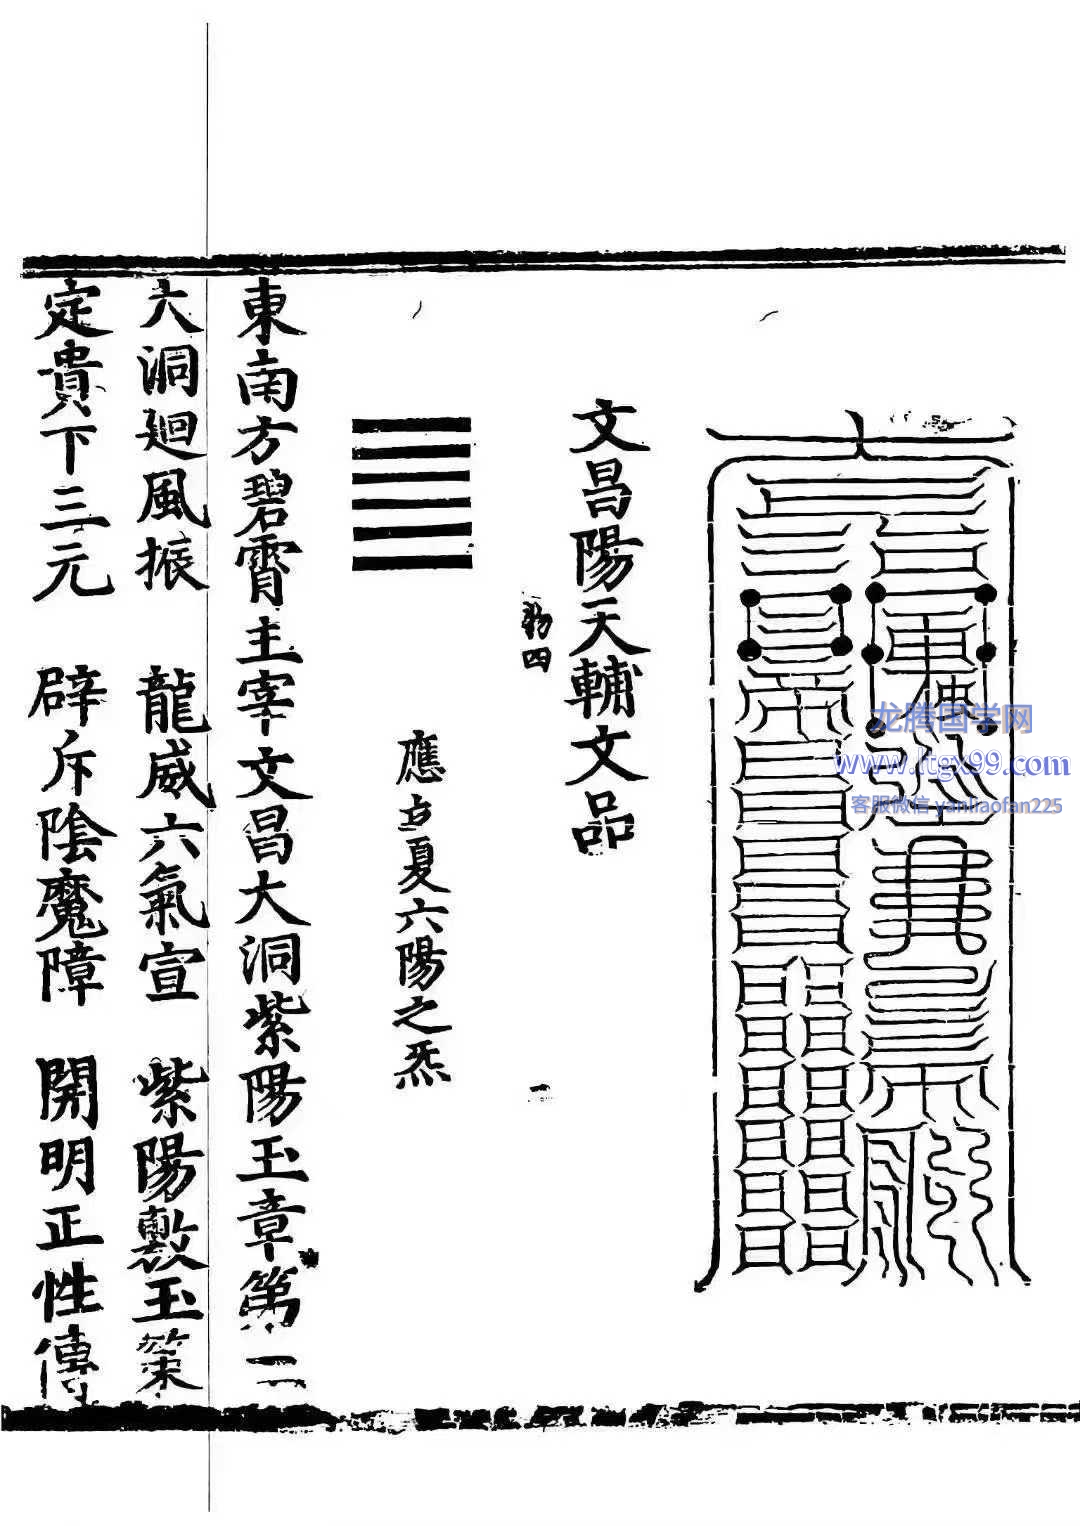 文昌陽天輔文品
四
應立夏六陽之炁
東南方碧霄主宰文昌大洞紫陽玉章第二
大洞廻風振　龍威六氣宣　紫陽敷玉策
定貴下三元　辟斥陰魔障　開明正性傳
龙腾国学网
www.ltgx99.com
客服微信 yanliaofan225